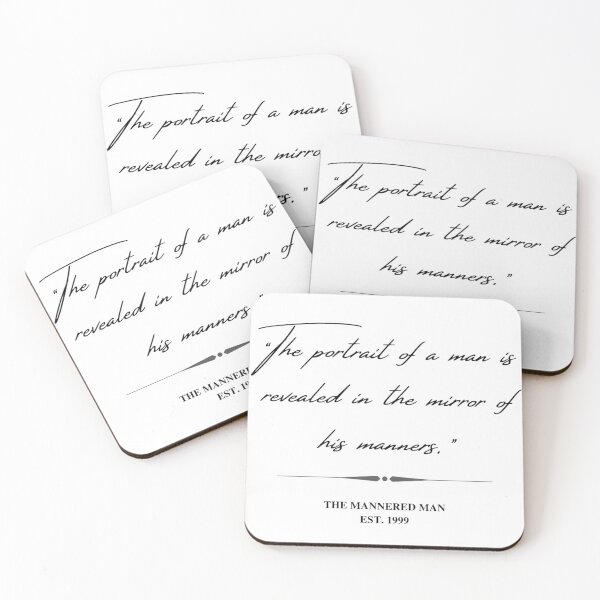 “The portrait of a man is
revealed in the
“The portrait of a man is
revealed in the mirror of
his manners.”
“The portrait of a man is
revealed in the mirror of
his manners.
THE
EST.
“The portrait of a man is
revealed in the mirror of
his manners.”
THE MANNERED MAN
EST. 1999